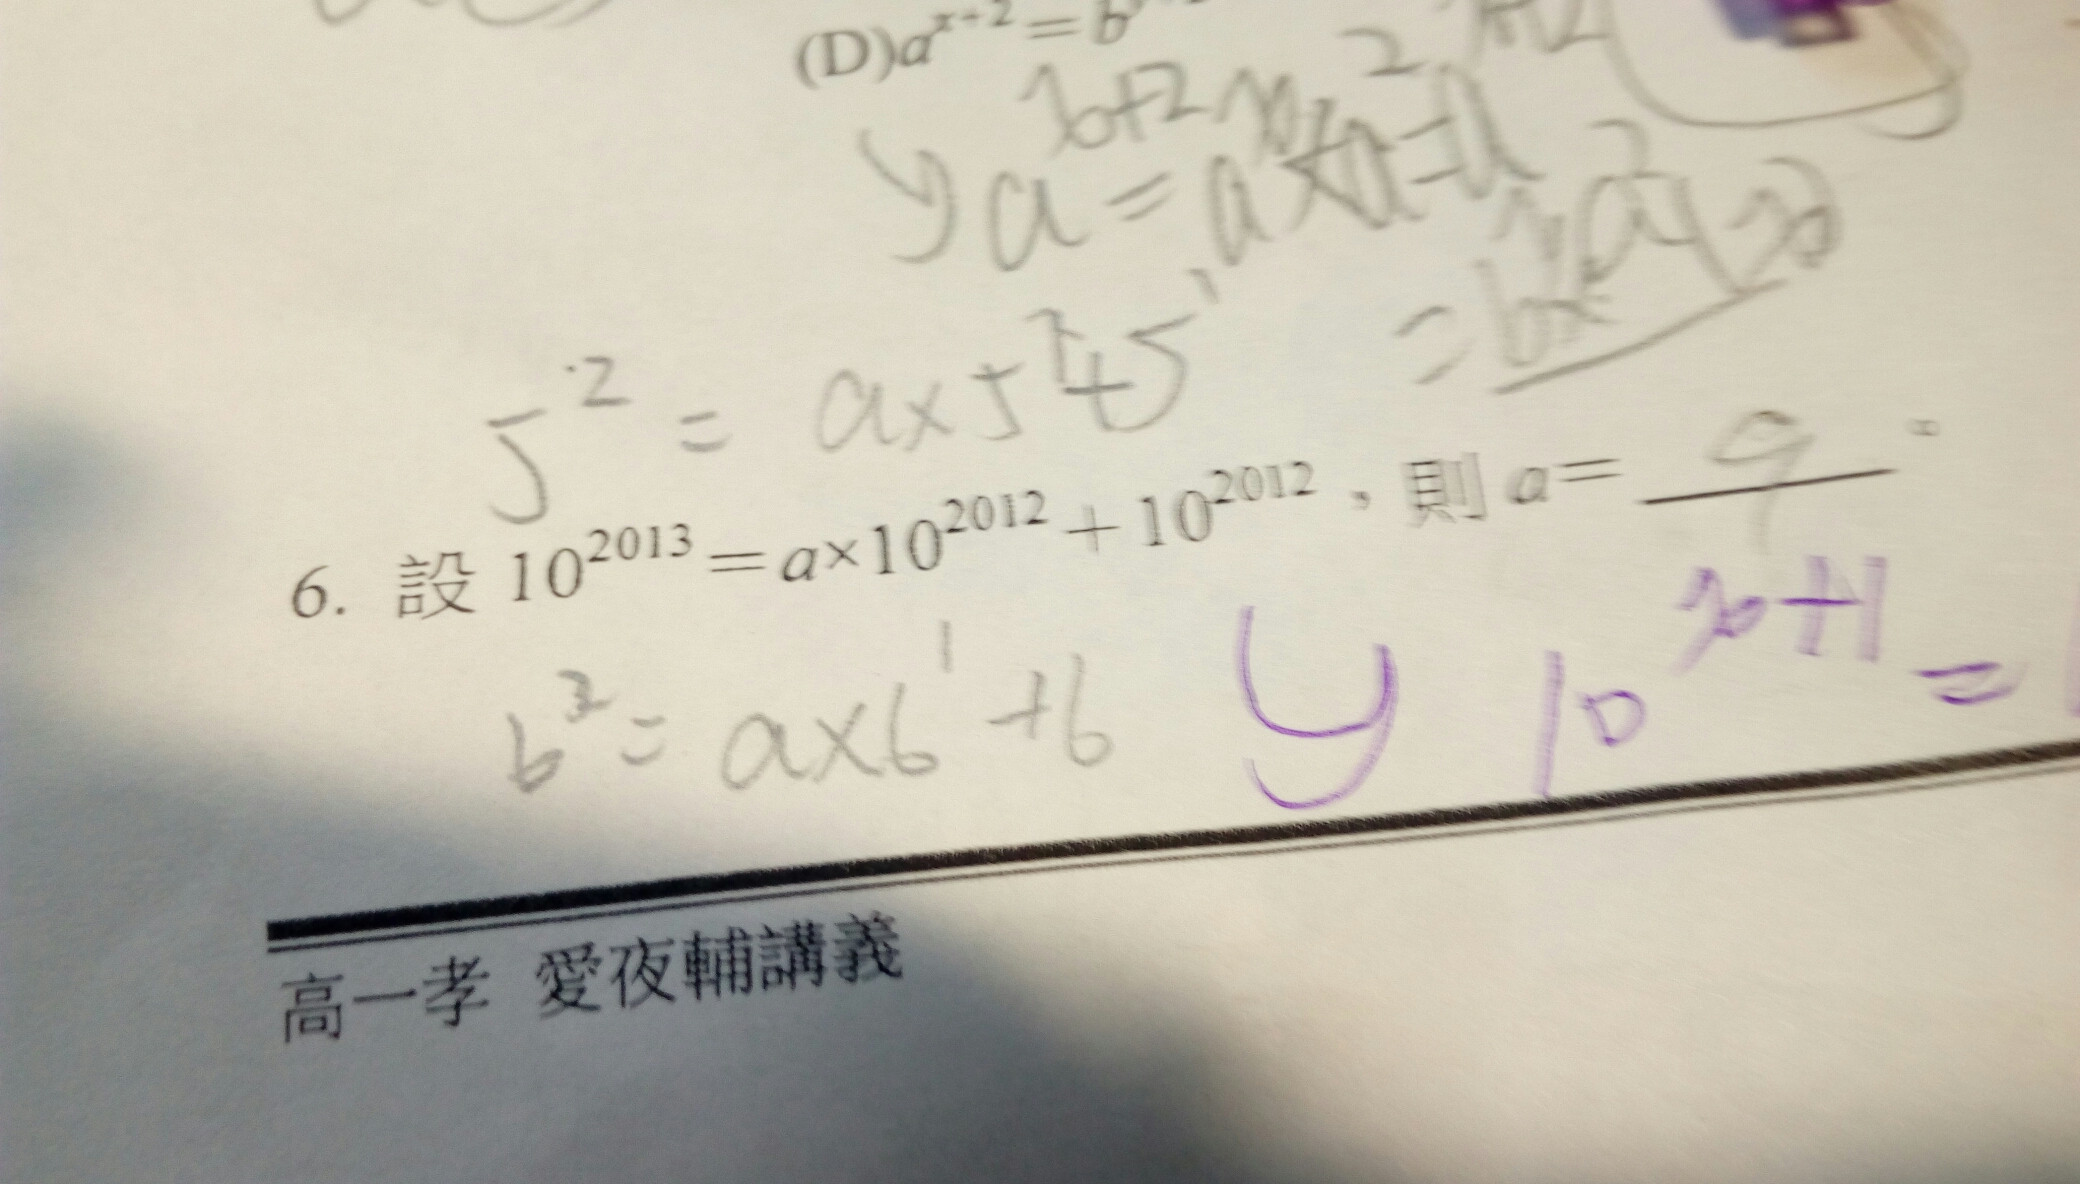 (D)aˣ⁺² = b
y a^(x+2) = aˣ × a² = a
= bˣ
5² = a×5¹+5¹
6. 設 10²⁰¹³=a×10²⁰¹²+10²⁰¹²，則 a= 9 。
b² = a×b¹+b
y 10ˣ⁺¹ =
高一孝 愛夜輔講義